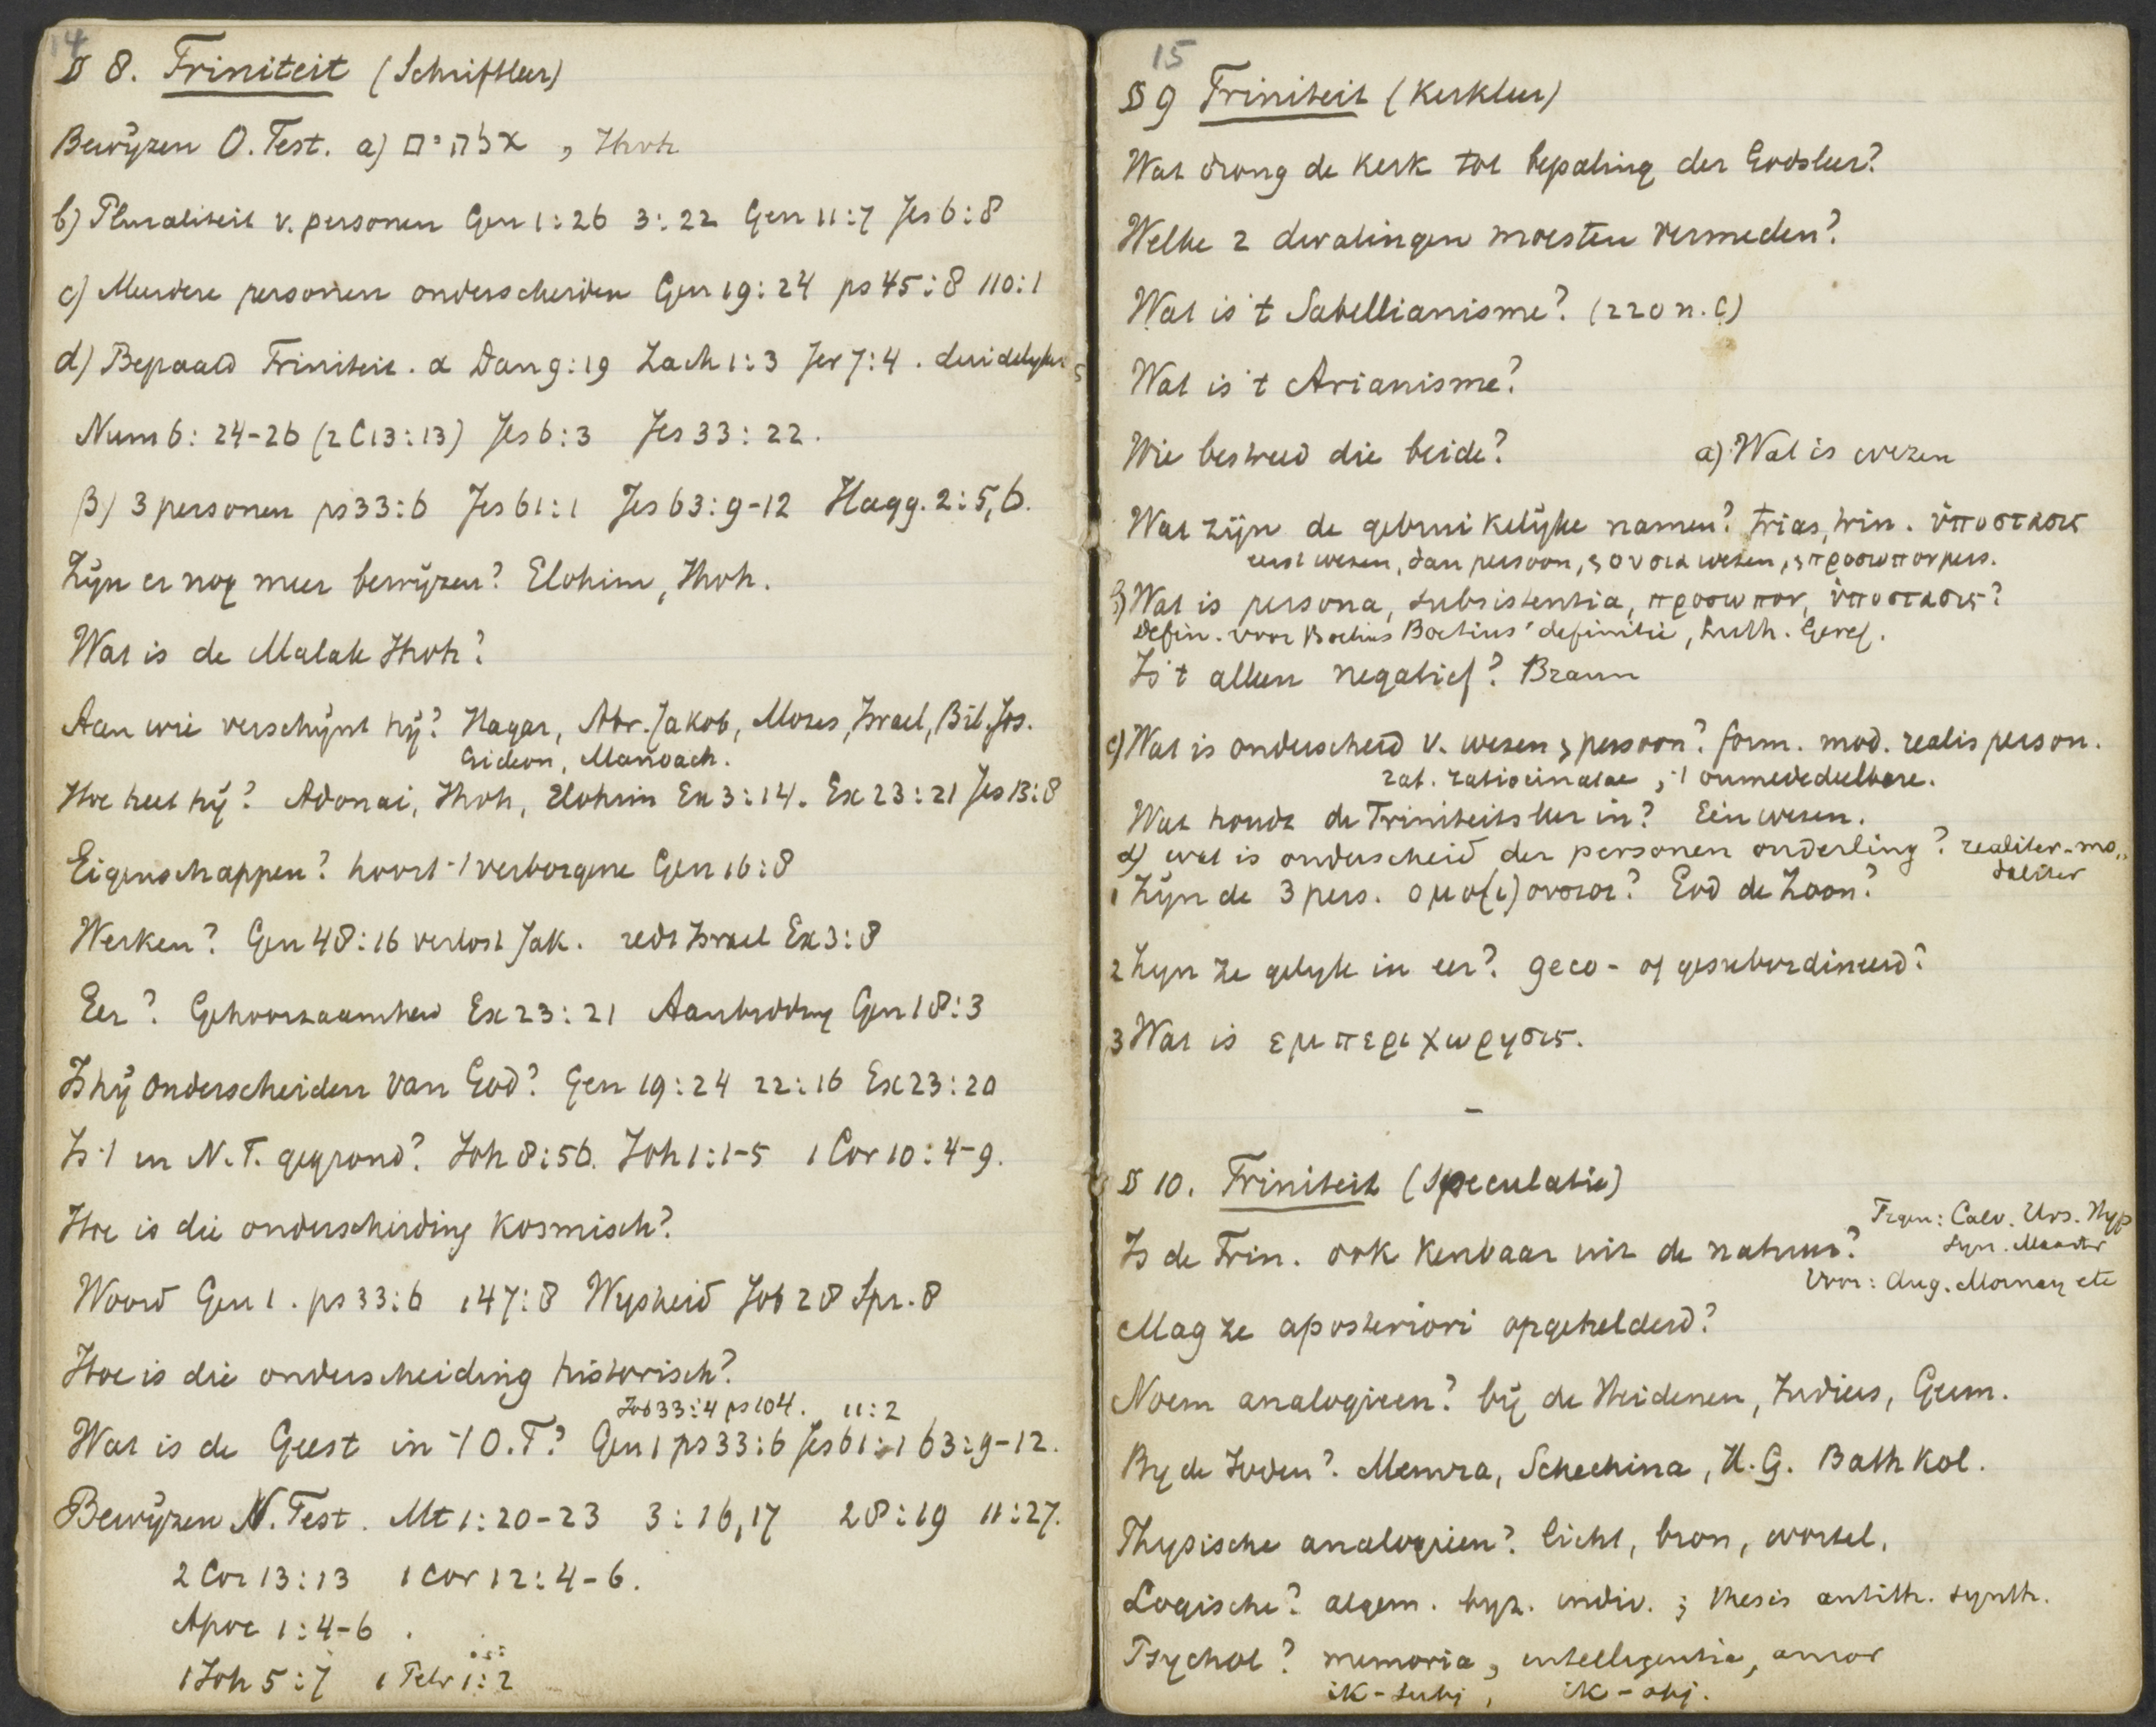 14
§ 8. Triniteit (Schriftleer)
Bewijzen O. Test. a) אלהים, Ihvh
b) Pluraliteit v. personen Gen 1:26 3:22 Gen 11:7 Jes 6:8
c) Meerdere personen onderscheiden Gen 19:24 ps 45:8 110:1
d) Bepaald Triniteit. α Dan 9:19 Zach 1:3 Jer 7:4. duidelijker
Num 6:24-26 (2 C 13:13) Jes 6:3 Jes 33:22.
β) 3 personen ps 33:6 Jes 61:1 Jes 63:9-12 Hagg. 2:5,6.
Zijn er nog meer bewijzen? Elohim, Ihvh.
Wat is de Malak Ihvh?
Aan wie verschijnt hij? Hagar, Abr. Jakob, Mozes, Israel, Bil. Jos.
Gideon, Manoach.
Hoe heet hij? Adonai, Ihvh, Elohim Ex 3:14. Ex 23:21 Jes 13:8
Eigenschappen? hoort 't verborgene Gen 16:8
Werken? Gen 48:16 verlost Jak. redt Israel Ex 3:8
Eer? Gehoorzaamheid Ex 23:21 Aanbidding Gen 18:3
Is hij onderscheiden van God? Gen 19:24 22:16 Ex 23:20
Is 't in N.T. gegrond? Joh 8:56. Joh 1:1-5 1 Cor 10:4-9.
Hoe is die onderscheiding kosmisch?
Woord Gen 1. ps 33:6 147:8 Wijsheid Job 28 Spr. 8
Hoe is die onderscheiding historisch?
Job 33:4 ps 104. 11:2
Wat is de Geest in 't O.T? Gen 1 ps 33:6 Jes 61:1 63:9-12.
Bewijzen N. Test. Mt 1:20-23 3:16,17 28:19 11:27.
2 Cor 13:13 1 Cor 12:4-6.
Apoc 1:4-6.
1 Joh 5:7 1 Petr 1:2
15
§ 9 Triniteit (Kerkleer)
Wat drong de Kerk tot bepaling der Godsleer?
Welke 2 dwalingen moesten vermeden?
Wat is 't Sabellianisme? (220 n. C)
Wat is 't Arianisme?
Wie bestreed die beide? a) Wat is wezen
Wat zijn de gebruikelijke namen? trias, trin. ὑποστασις
eerst wezen, dan persoon, ουσια wezen, προσωπον pers.
b) Wat is persona, subsistentia, προσωπον, ὑποστασις?
Defin. voor Boetius Boetius' definitie, Luth. Geref.
Is 't alleen negatief? Braun
c) Wat is onderscheid v. wezen & persoon? form. mod. realis person.
rat. ratiocinatae, 't onmededeelbare.
Wat houdt de Triniteitsleer in? Eén wezen.
d) wat is onderscheid der personen onderling? realiter-mo„
daliter
1 Zijn de 3 pers. ομο(ι)ουσιοι? God de Zoon?
2 Zijn ze gelijk in eer? geco- of gesubordineerd?
3 Wat is εμπεριχωρησις.
–
§ 10. Triniteit (Speculatie)
Tegen: Calv. Urs. Hyp
Is de Trin. ook kenbaar uit de natuur? Syn.
Voor: Aug. Mornay etc
Mag ze aposteriori opgehelderd?
Noem analogieen? bij de Heidenen, Indiers, Germ.
Bij de Joden? Memra, Schechina, H.G. Bath Kol.
Physische analogieën? licht, bron, wortel.
Logische? algem. byz. indiv.; thesis antith. synth.
Psychol? memoria, intelligentia, amor
ik-subj, ik-obj.